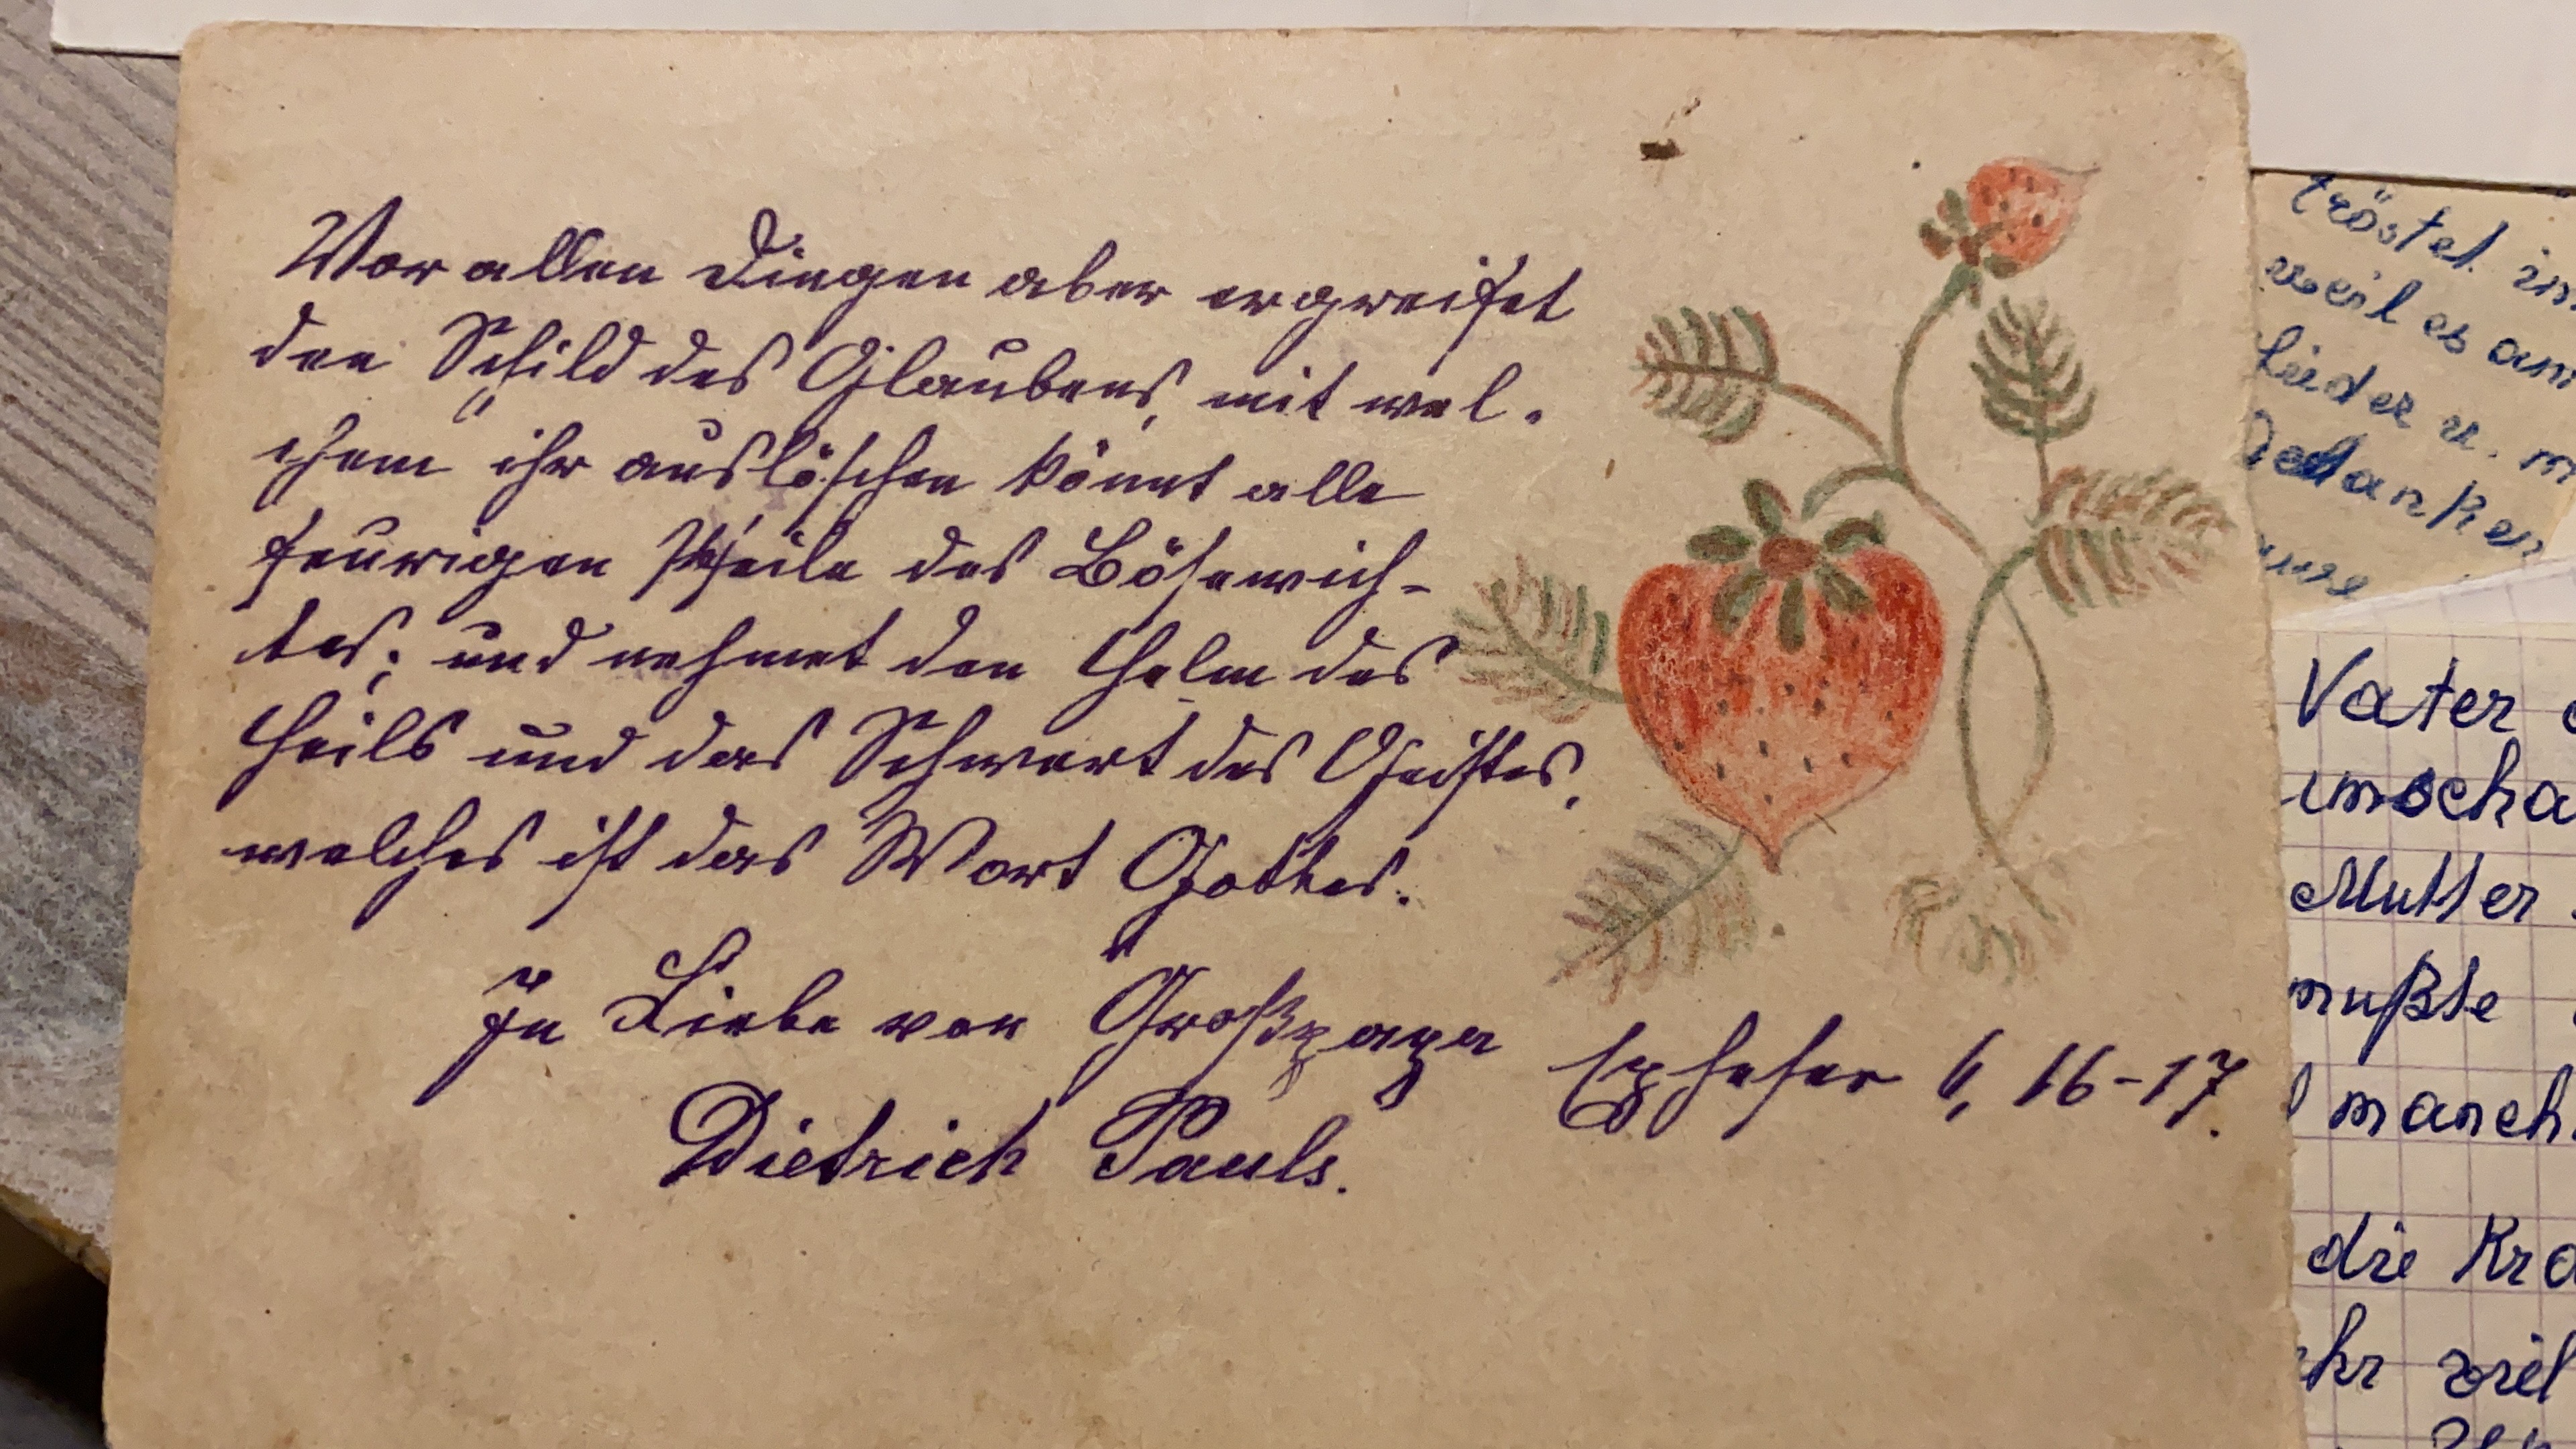 Vor allen Dingen aber ergreifet
den Schild des Glaubens, mit wel-
chem ihr auslöschen könnt alle
feurigen Pfeile des Bösewich-
tes; und nehmet den Helm des
Heils und das Schwert des Geistes,
welches ist das Wort Gottes.
In Liebe von Großpapa
Dietrich Pauls.
Epheser 6, 16-17.
tröstet
weil es am
Lieder u. m
Gedanken
Vater
imscha
Mutter
mußte
manch
die Kra
viel